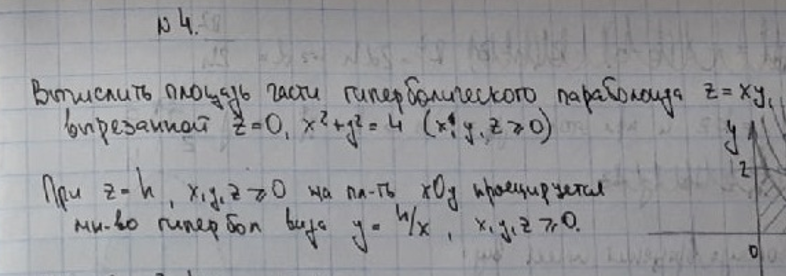 №4.
Вычислить площадь части гиперболического параболоида z = xy,
вырезанной z=0, x²+y²=4 (x, y, z ⩾ 0)
y
2
При z=h, x,y,z ⩾ 0 на пл-ть xOy проецируется
мн-во гипербол вида y = h/x, x,y,z ⩾ 0.
0